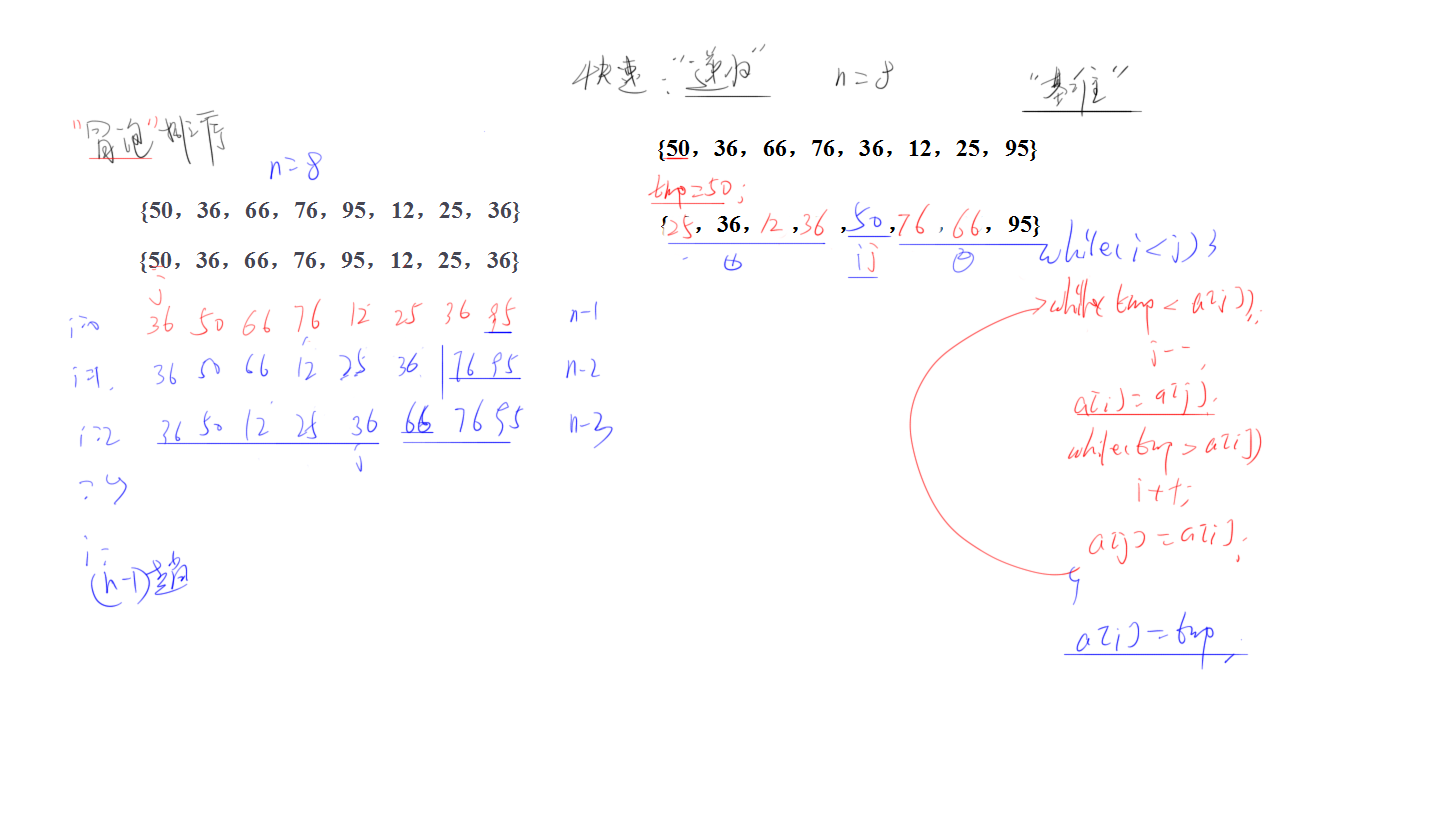 "冒泡"排序
n=8
{50, 36, 66, 76, 95, 12, 25, 36}
{50, 36, 66, 76, 95, 12, 25, 36}
j
i=0 36 50 66 76 12 25 36 95 n-1
i=1. 36 50 66 12 25 36 76 95 n-2
i=2 36 50 12 25 36 66 76 95 n-3
j
i=
(n-1)趟
快速:"递归" n=8 "基准"
{50, 36, 66, 76, 36, 12, 25, 95}
tmp=50;
{25, 36, 12, 36, 50, 76, 66, 95}
i j
while(i<j){
while(tmp<a[j]);
j--;
a[i]=a[j];
while(tmp>a[i])
i++;
a[j]=a[i];
}
a[i]=tmp;